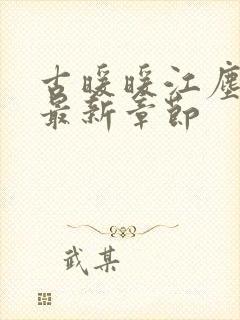 古暖暖江尘
最新章节
武某